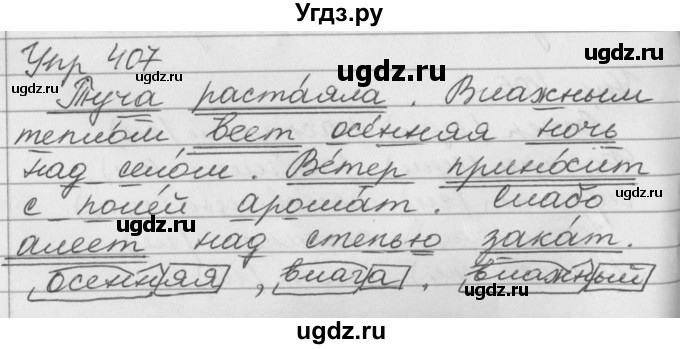 Угдз.ру
Упр 407
Туча растаяла. Влажным
теплом веет осенняя ночь
над селом. Ветер приносит
с полей аромат. Слабо
алеет над степью закат.
осенняя, влага, влажный
ugdz.ru
ugdz.ru
ugdz.ru
ugdz.ru
ugdz.ru
ugdz.ru
ugdz.ru
ugdz.ru
ugdz.ru